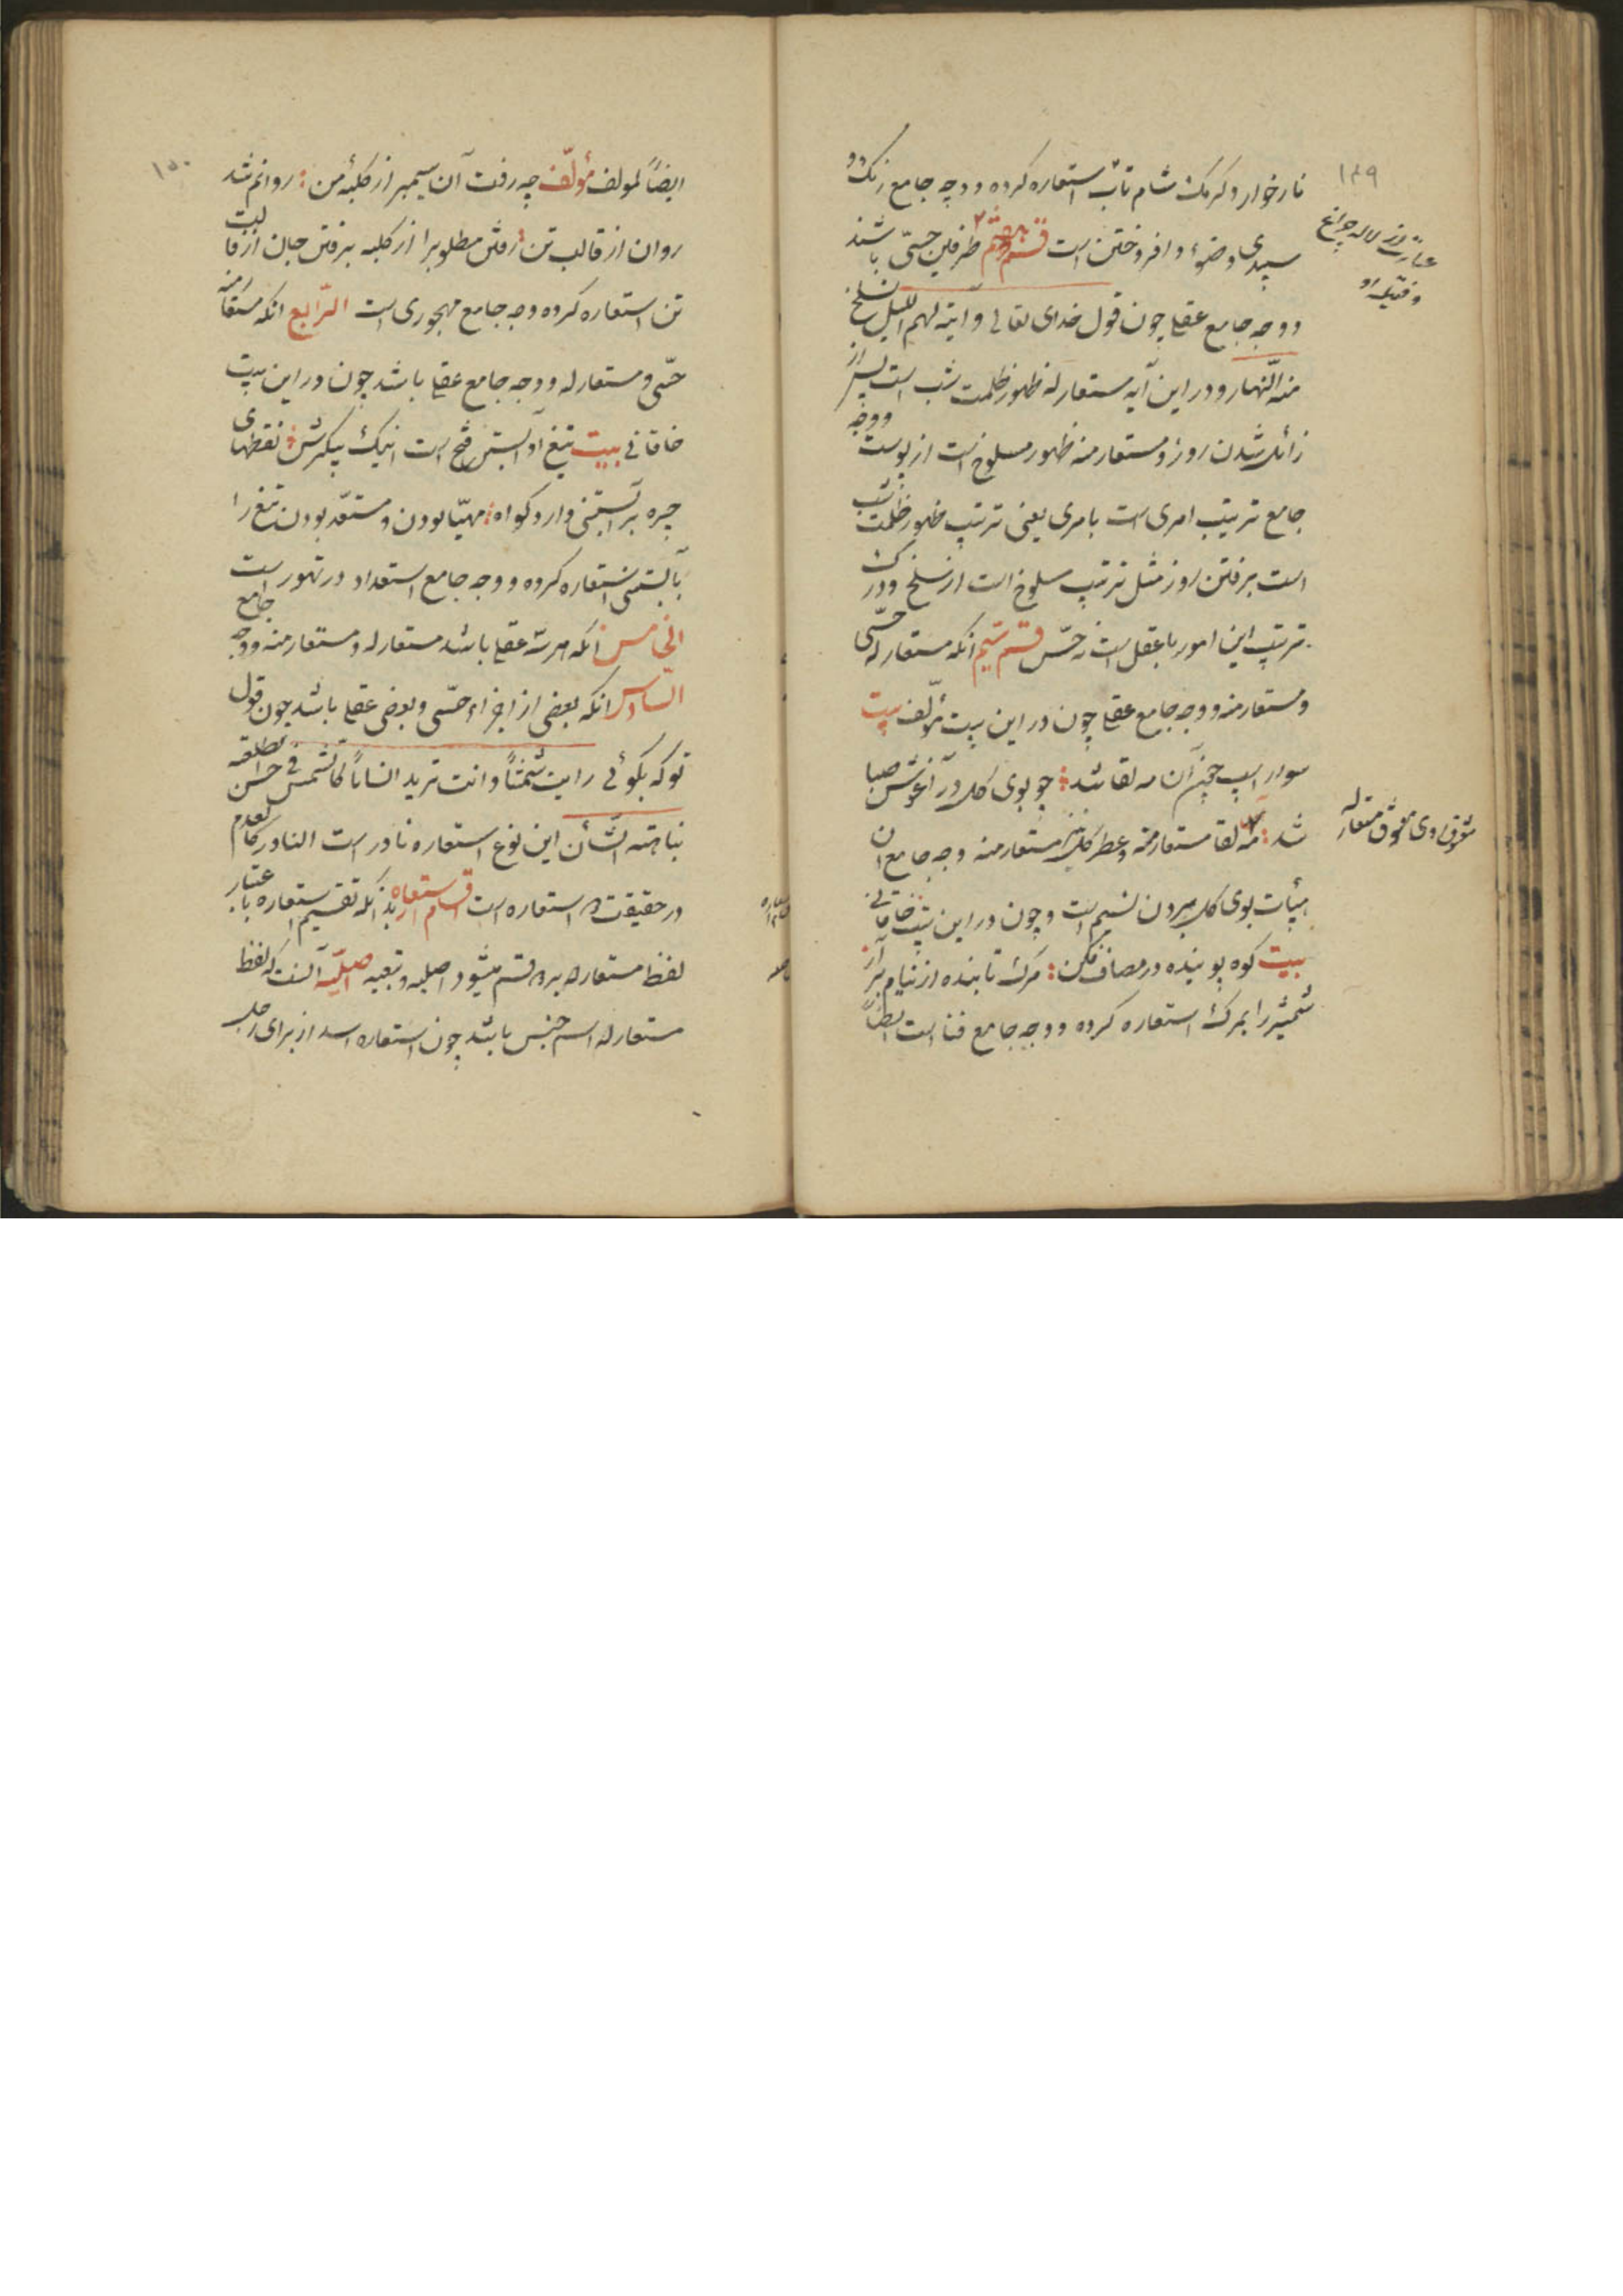 ۱۴۹
نار خوار و کرمک شام تاب استعاره کرده و وجه جامع رنک و
سپیدی وضوء و افروختن است قسم دویم طرفین حسّی باشند
و وجه جامع عقلی چون قول خدای تعالی و آیته لهم اللیل نسلخ
منه النّهار و در این آیه مستعار له ظهور ظلمت شب است پس از
زائل شدن روز و مستعار منه ظهور مسلوخ است از پوست و وجه
جامع ترتیب امری است بامری یعنی ترتیب ظهور ظلمت شب
است برفتن روز مثل ترتیب سلوخ است از سلخ و درک
ترتیب این امور با عقل است نه حسّ قسم سیم انکه مستعار له حسّی
و مستعار منه و وجه جامع عقلی چون در این بیت مؤلف بیت
سوار اسپ چنین آن مه لقا شد چو بوی کل در آغوش صبا
شد مه لقا مستعار منه و عطر کل مستعار منه وجه جامع ان
هیأت بوی کل بردن نسیم است و چون در این بیت خاقانی
بیت کوه پوینده در مصاف فکن مرک تابنده از نیام برآر
شمشیر را بمرک استعاره کرده و وجه جامع فنا است ایضاً
عبارت از لاله چراغ
و فتیله او
شوق روی معشوق مستعار له
۱۵۰
ایضاً لمولف مؤلّف چه رفت آن سیمبر از کلبهٔ من روانم شد
روان از قالب تن رفتن مطلوبرا از کلبه برفتن جان از قالب
تن استعاره کرده وجه جامع مهجوری است الرّابع انکه مستعار منه
حسّی و مستعار له و وجه جامع عقلی باشد چون در این بیت
خاقانی بیت تیغ او آبستن فتح است اینک پیکرش نقطهای
چهره بر آبستنی دارد کواه مهیّا بودن و مستعد بودن تیغ را
بآبستنی استعاره کرده و وجه جامع استعداد در تهور است
الخامس انکه هر سه عقلی باشد مستعار له و مستعار منه و وجه جامع
السّادس انکه بعضی از اجزاء حسّی و بعضی عقلی باشد چون قول
تو که بکوئی رایت شمسًا و انت ترید انساناً کالشمس فی حسن الطلعه
نباهته الشأن این نوع استعاره نادر است النادر کالمعدم
در حقیقت دو استعاره است اقسام استعاره بدانکه تقسیم استعاره باعتبار
لفظ مستعار له بر دو قسم میشود اصلیه و تبعیه اصلیّه آنست که لفظ
مستعار له اسم جنس باشد چون استعاره اسد از برای رجل